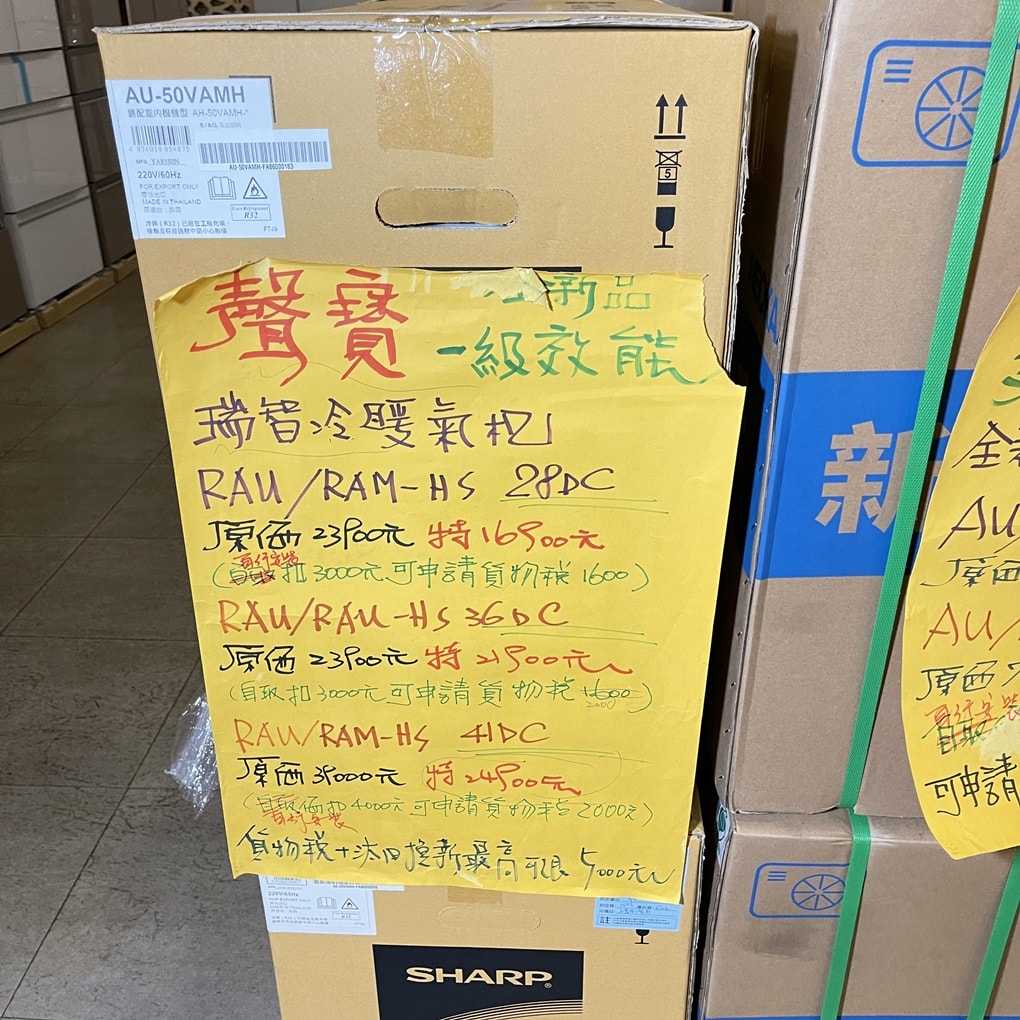 AU-50VAMH
適配室內機機型 AH-50VAMH-*
AU-50VAMH-FA86000163
220V/60Hz
FOR EXPORT ONLY
MADE IN THAILAND
R32
5
聲寶
新品
一級效能
瑞智冷暖氣机
RAU/RAM-HS 28DC
原価23900元 特16900元
自行安裝
(自取扣3000元可申請貨物税1600)
RAU/RAU-HS 36DC
原価23900元 特21900元
(自取扣3000元可申請貨物税1600)
2000
RAU/RAM-HS 41DC
原価39000元 特24900元
(自取価扣4000元可申請貨物税2000元)
自行安裝
貨物税+汰旧換新最高可退5000元
220V/60Hz
SHARP
新
全
AU/
原価
AU/
原価
自行安裝
自取
可申請